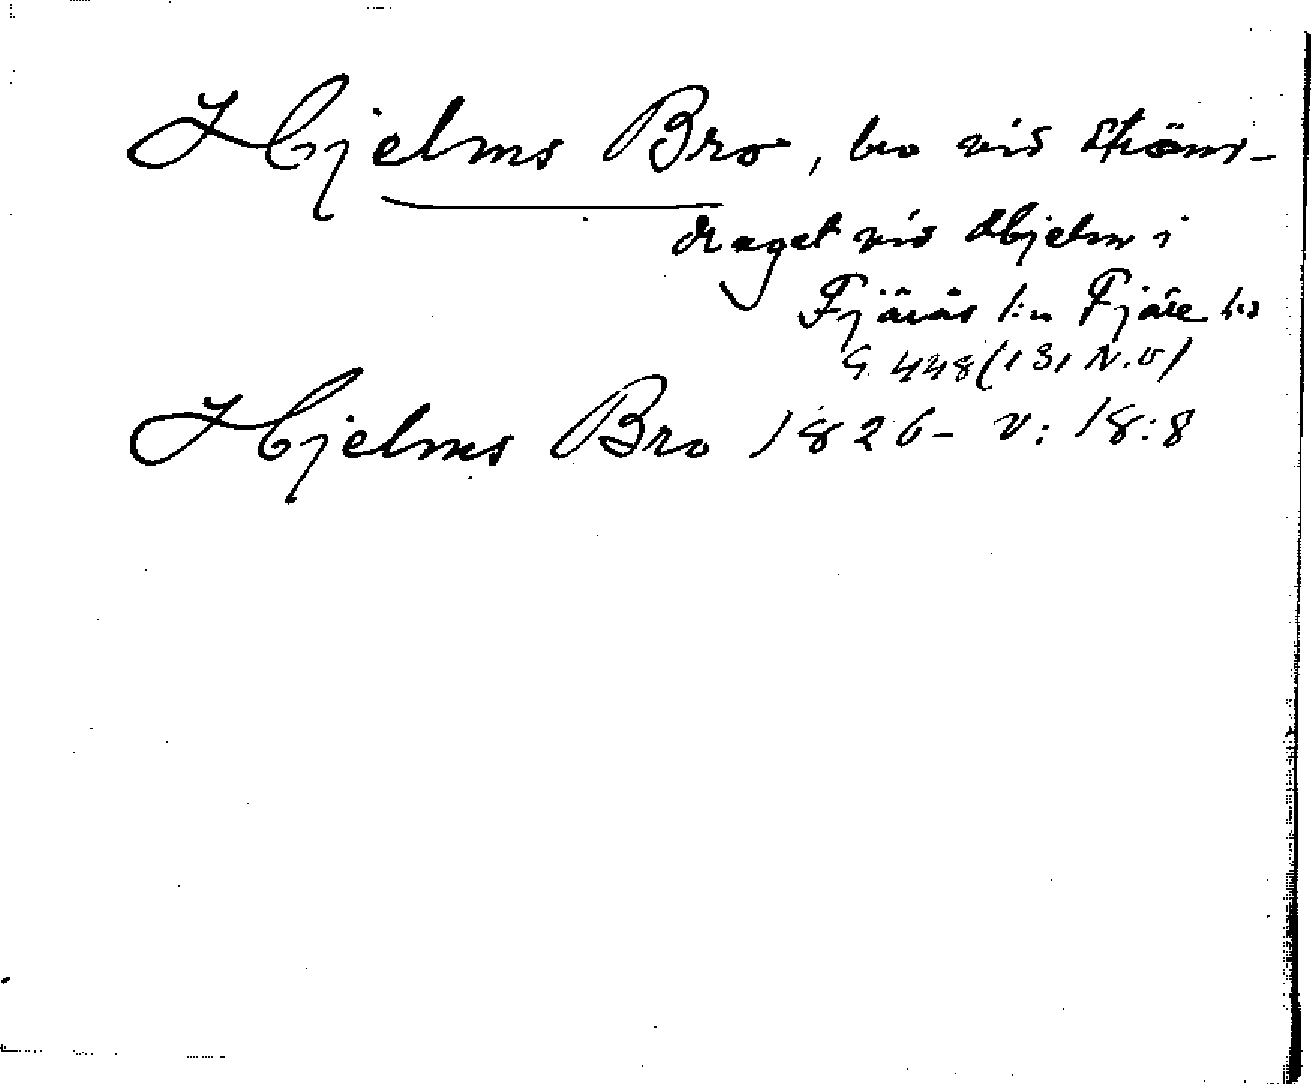 Hjelms Bro, bro vid ström-
draget vid Hjelm i
Fjärås s:n Fjäre hd
G. 448 (131 N.O)
Hjelms Bro 1826- V: 18:8